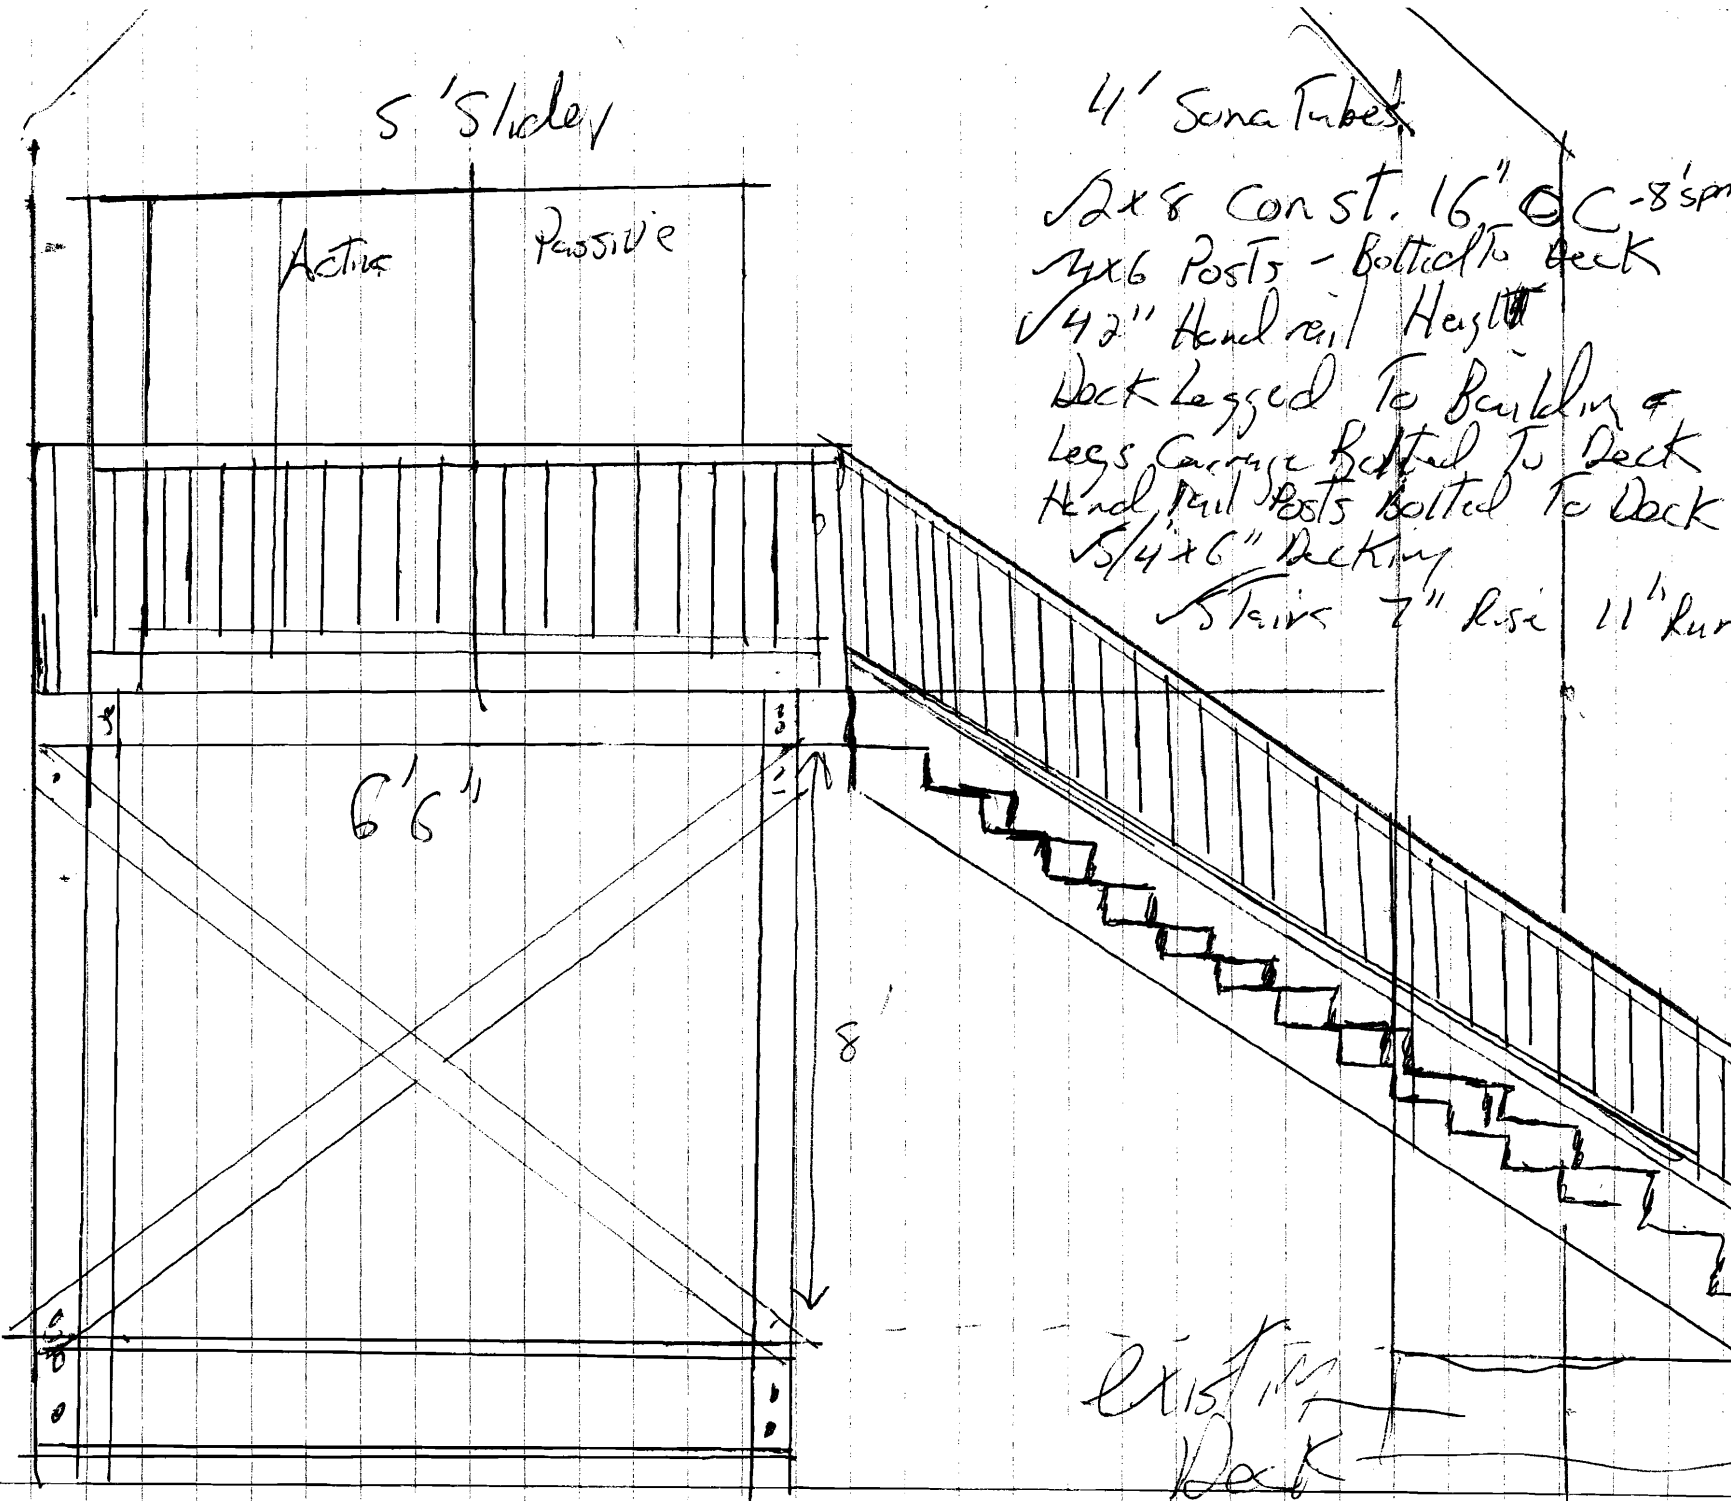 5' Slider
Active
Passive
4' Sona Tubes
✓2x8 Const. 16" OC -8' spn
✓4x6 Posts - Bolted To Deck
✓42" Handrail Height
Deck Lagged To Building &
Legs Carriage Bolted To Deck
Hand Rail Posts Bolted To Deck
✓5/4 x 6" Decking
✓Stairs 7" Rise 11" Run
6'6"
8'
existing
Deck